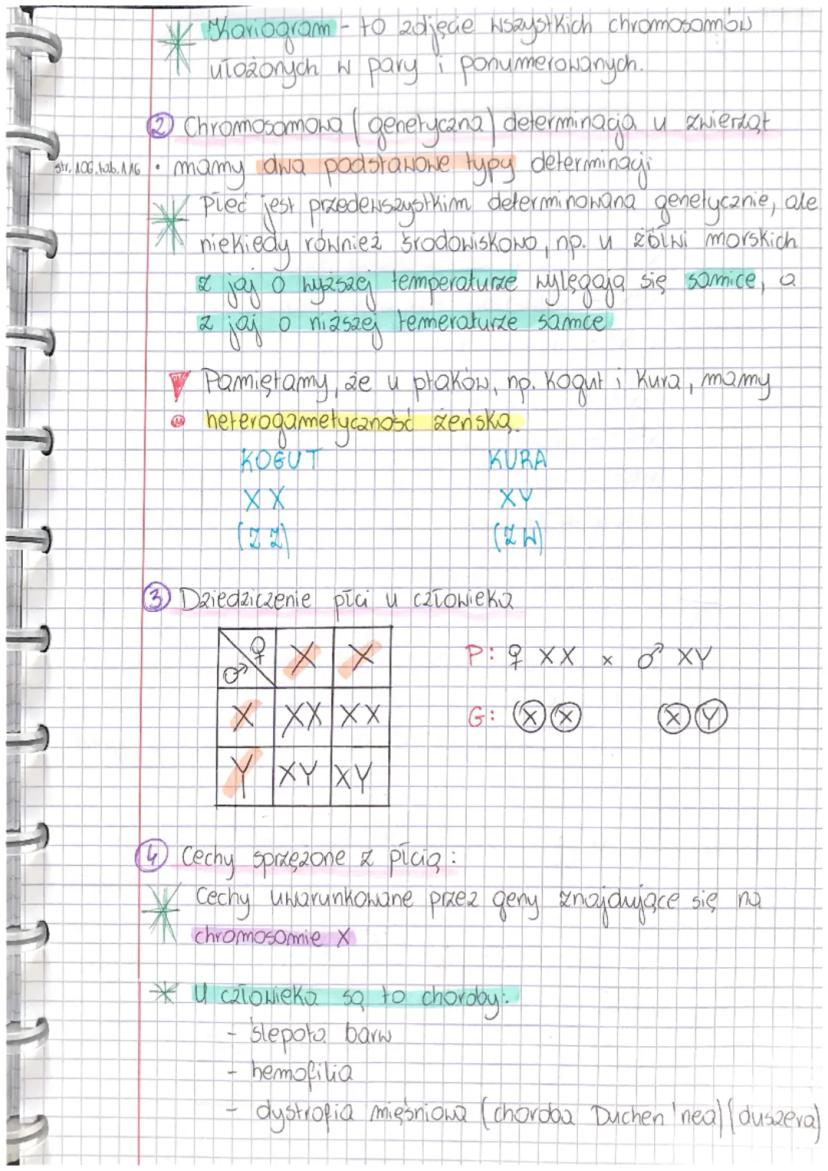 Kariogram - to zdjęcie wszystkich chromosomów
ułożonych w pary i ponumerowanych.
② Chromosomowa (genetyczna) determinacja u zwierząt
str. 106. tab. 1.16 • mamy dwa podstawowe typy determinacji
Płeć jest przedewszystkim determinowana genetycznie, ale
niekiedy również środowiskowo, np. u żółwi morskich
z jaj o wyższej temperaturze wylęgają się samice, a
z jaj o niższej temeraturze samce
Pamiętamy, że u ptaków, np. Kogut i Kura, mamy
heterogametyczność żeńską.
KOGUT KURA
XX XY
(ZZ) (ZW)
③ Dziedziczenie płci u człowieka
♂ ♀ X X
X XX XX
Y XY XY
P: ♀ XX x ♂ XY
G: X X X Y
④ Cechy sprzężone z płcią:
Cechy uwarunkowane przez geny znajdujące się na
chromosomie X
U człowieka są to choroby:
- ślepota barw
- hemofilia
- dystrofia mięśniowa (choroba Duchen'nea) (duszena)